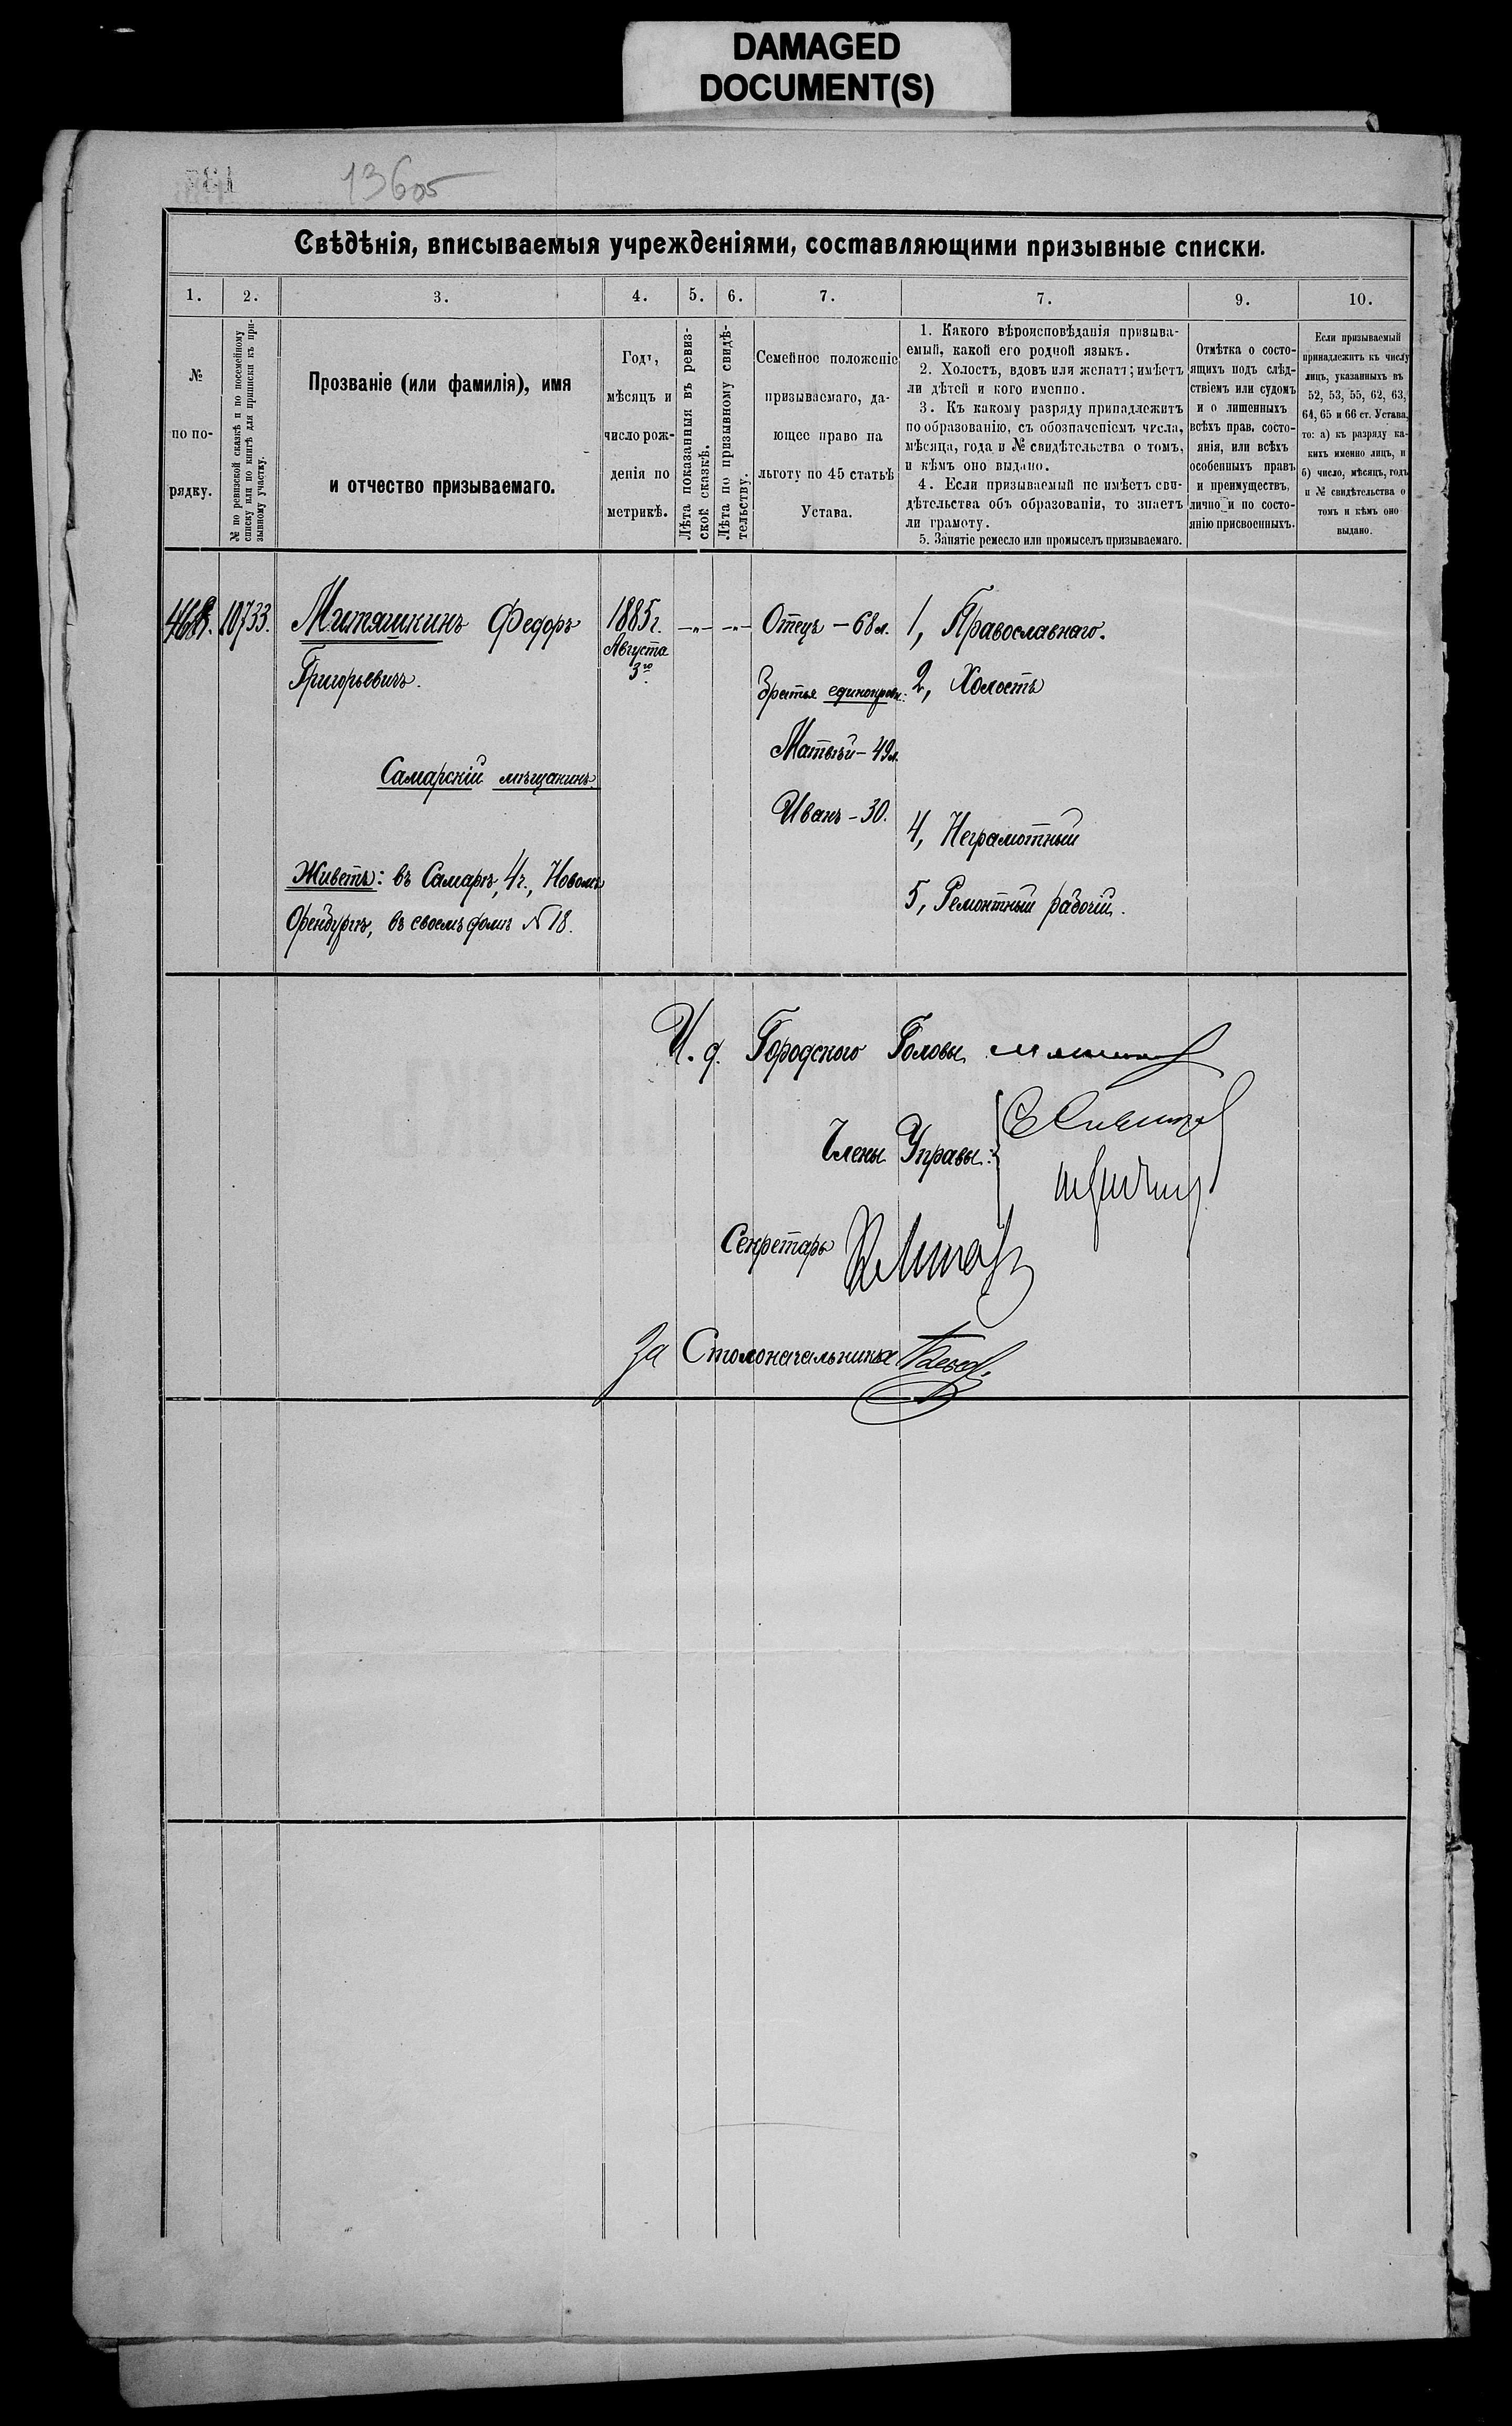 DAMAGED
DOCUMENT(S)
13605
Свѣдѣнія, вписываемыя учрежденіями, составляющими призывные списки.
1. 2. 3. 4. 5. 6. 7. 7. 9. 10.
№
по по-
рядку.
№ по ревизской сказкѣ и по посемейному
списку или по книгѣ для приписки къ при-
зывному участку.
Прозваніе (или фамилія), имя
и отчество призываемаго.
Годъ,
мѣсяцъ и
число рож-
денія по
метрикѣ.
Лѣта показанныя въ ревиз-
ской сказкѣ.
Лѣта по призывному свидѣ-
тельству.
Семейное положеніе
призываемаго, да-
ющее право на
льготу по 45 статьѣ
Устава.
1. Какого вѣроисповѣданія призыва-
емый, какой его родной языкъ.
2. Холостъ, вдовъ или женатъ; имѣетъ
ли дѣтей и кого именно.
3. Къ какому разряду принадлежитъ
по образованію, съ обозначеніемъ числа,
мѣсяца, года и № свидѣтельства о томъ,
и кѣмъ оно выдано.
4. Если призываемый не имѣетъ сви-
дѣтельства объ образованіи, то знаетъ
ли грамоту.
5. Занятіе ремесло или промыселъ призываемаго.
Отмѣтка о состо-
ящихъ подъ слѣд-
ствіемъ или судомъ
и о лишенныхъ
всѣхъ прав. состо-
янія, или всѣхъ
особенныхъ правъ
и преимуществъ,
лично и по состо-
янію присвоенныхъ.
Если призываемый
принадлежитъ къ числу
лицъ, указанныхъ въ
52, 53, 55, 62, 63,
64, 65 и 66 ст. Устава,
то: а) къ разряду ка-
кихъ именно лицъ, и
б) число, мѣсяцъ, годъ
и № свидѣтельства о
томъ и кѣмъ оно
выдано.
10733.
Митяшкинъ Федоръ
Григорьевичъ.
Самарскій мѣщанинъ.
Живетъ: въ Самарѣ, 4ч., Новомъ
Оренбургѣ, въ своемъ домѣ № 18.
1885г.
Августа
3го
—"— —"—
Отецъ – 68 л.
Братья единокровн.:
Матвѣй – 49 л.
Иванъ – 30.
1, Православнаго.
2, Холостъ
4, Неграмотный
5, Ремонтный рабочій.
И. д. Городского Головы
Члены Управы:
Секретарь
За Столоначальника